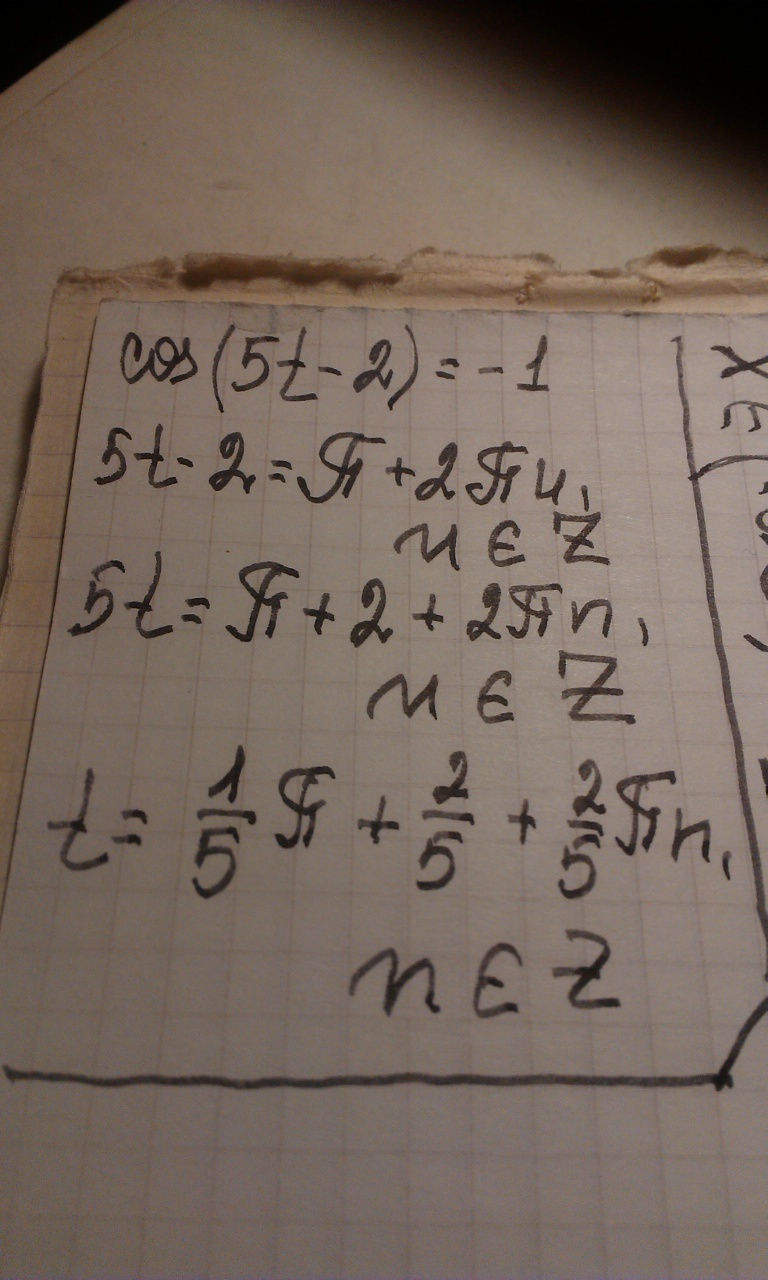 cos(5t-2)=-1
5t-2=π+2πn,
n∈Z
5t=π+2+2πn,
n∈Z
t= 1/5 π + 2/5 + 2/5 πn,
n∈Z